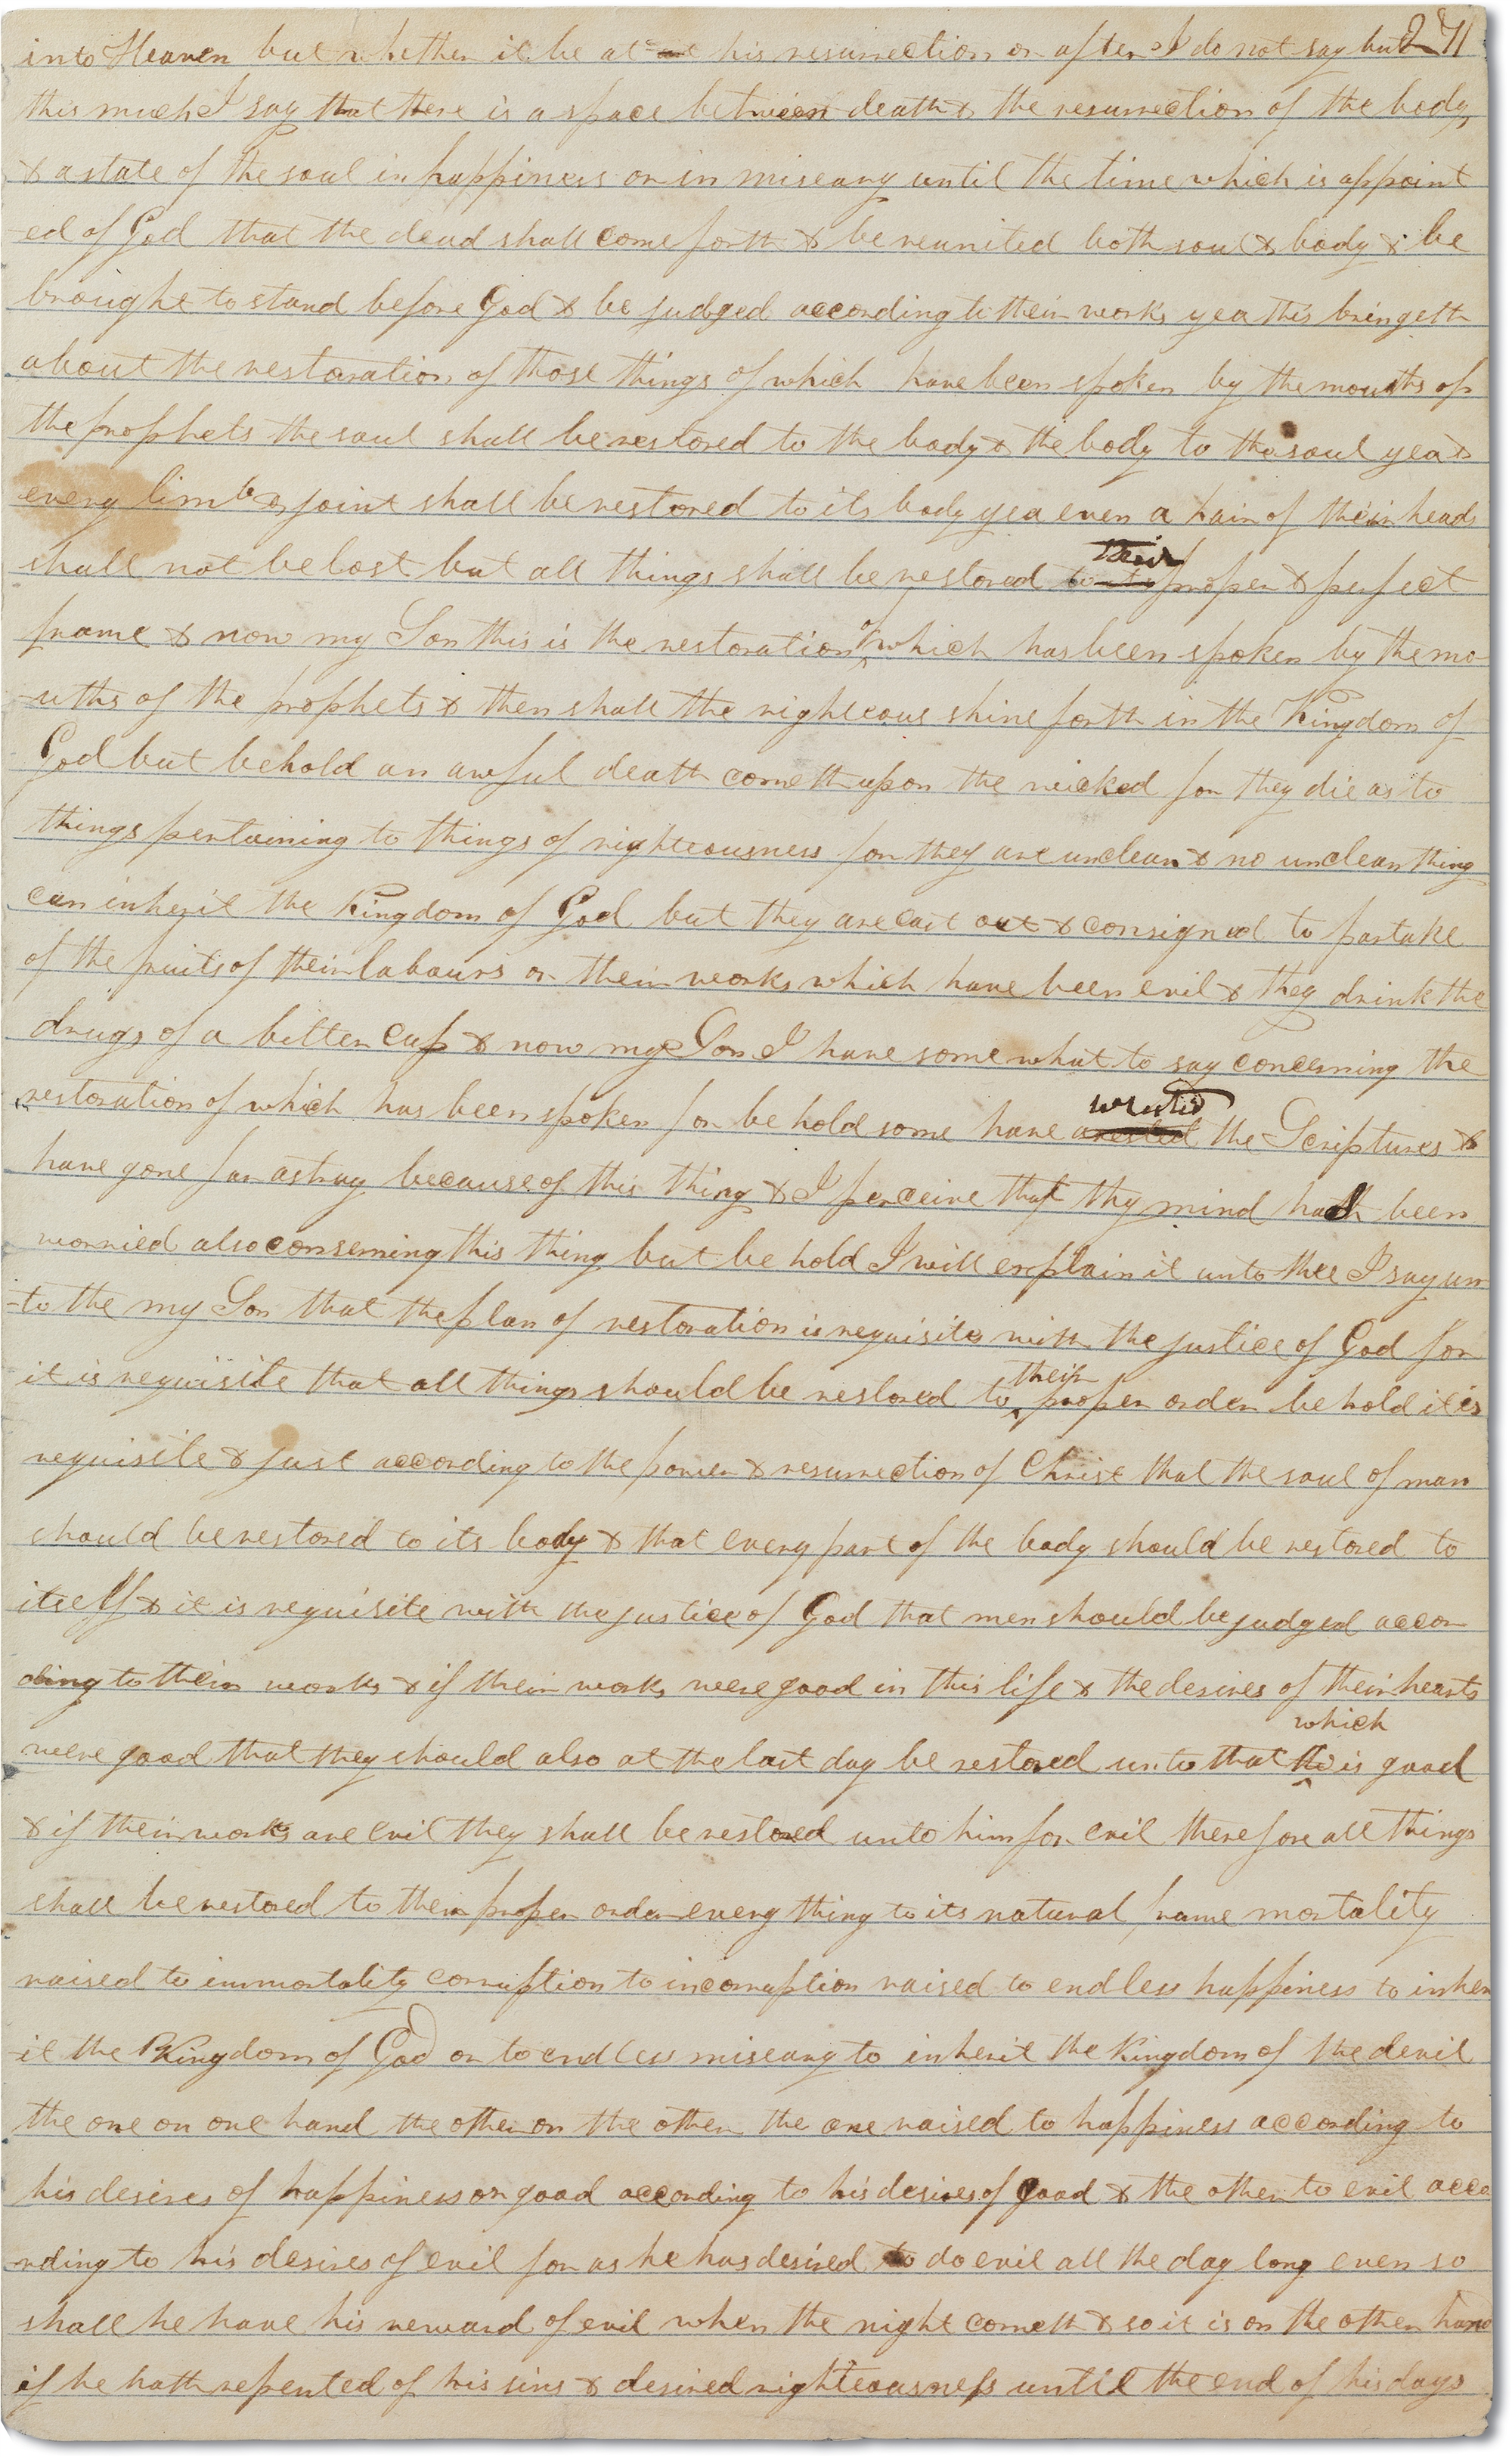 into Heaven but whether it be at at his resurrection or after I do not say but 271
this much I say that there is a space between death & the resurrection of the body
& a state of the soul in happiness or in miseary until the time which is appoint
-ed of God that the dead shall come forth & be reunited both soul & body & be
brought to stand before God & be judged according to their works yea this bringeth
about the restoration of those things of which have been spoken by the mouths of
the prophets the soul shall be restored to the body & the body to the soul yea &
every limb & joint shall be restored to its body yea even a hair of their heads
shall not be lost but all things shall be restored to its their proper & perfect
frame & now my Son this is the restoration of which has been spoken by the mo
-uths of the prophets & then shall the righteous shine forth in the Kingdom of
God but behold an awful death cometh upon the wicked for they die as to
things pertaining to things of righteousness for they are unclean & no unclean thing
can inherit the Kingdom of God but they are cast out & consigned to partake
of the fruits of their labours or their works which have been evil & they drink the
drugs of a bitter cup & now my Son I have somewhat to say concerning the
restoration of which has been spoken for behold some have arested wrested the Scriptures &
have gone far astray because of this thing & I perceive that thy mind hath been
worried also conserning this thing but behold I will explain it unto thee I say un
-to the my Son that the plan of restoration is requisite with the justice of God for
it is requisite that all things should be restored to their proper order behold it is
requisite & just according to the power & resurrection of Christ that the soul of man
should be restored to its body & that every part of the body should be restored to
itself & it is requisite with the justice of God that men should be judged accor
ding to their works & if their works were good in this life & the desires of their hearts
were good that they should also at the last day be restored unto that which is good
& if their works are evil they shall be restored unto him for evil therefore all things
shall be restored to their proper order every thing to its natural frame mortality
raised to immortality corruption to incorruption raised to endless happiness to inher
-it the Kingdom of God or to endless miseary to inherit the Kingdom of the devil
the one on one hand the other on the other the one raised to happiness according to
his desires of happiness or good according to his desires of good & the other to evil acco
-rding to his desires of evil for as he has desired to do evil all the day long even so
shall he have his reward of evil when the night cometh & so it is on the other hand
if he hath repented of his sins & desired righteousness until the end of his days